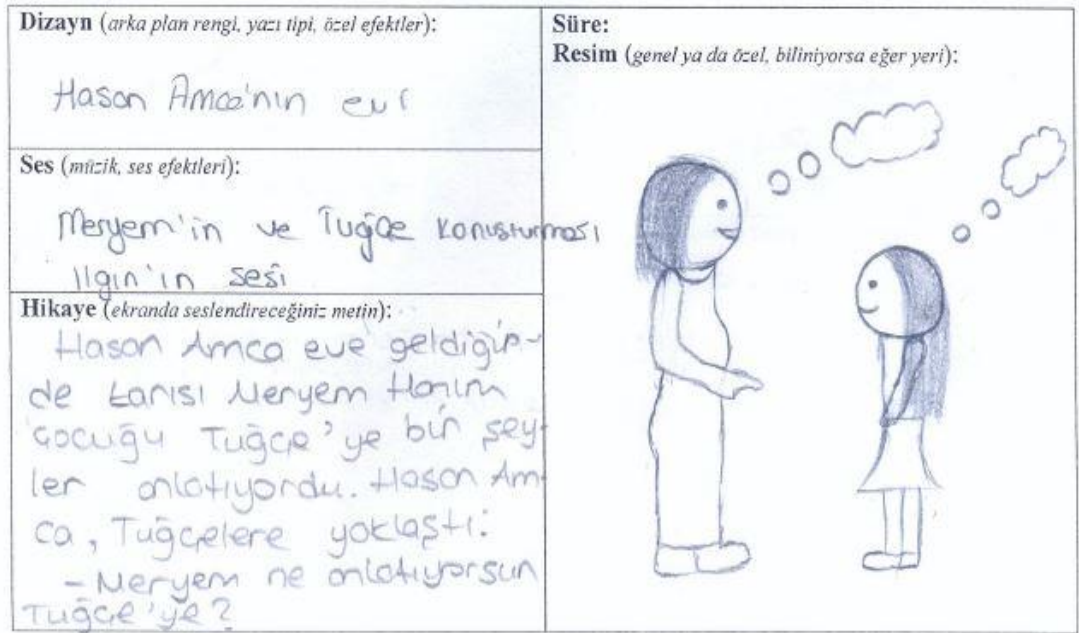 Dizayn (arka plan rengi, yazı tipi, özel efektler):
Hasan Amca'nın evi
Ses (müzik, ses efektleri):
Meryem'in ve Tuğçe konuşturması
Ilgın'ın sesi
Hikaye (ekranda seslendireceğiniz metin):
Hasan Amca eve geldiğin-
de karısı Meryem Hanım
çocuğu Tuğçe'ye bir şey-
ler anlatıyordu. Hasan Am-
ca, Tuğçelere yaklaştı:
- Meryem ne anlatıyorsun
Tuğçe'ye?
Süre:
Resim (genel ya da özel, biliniyorsa eğer yeri):